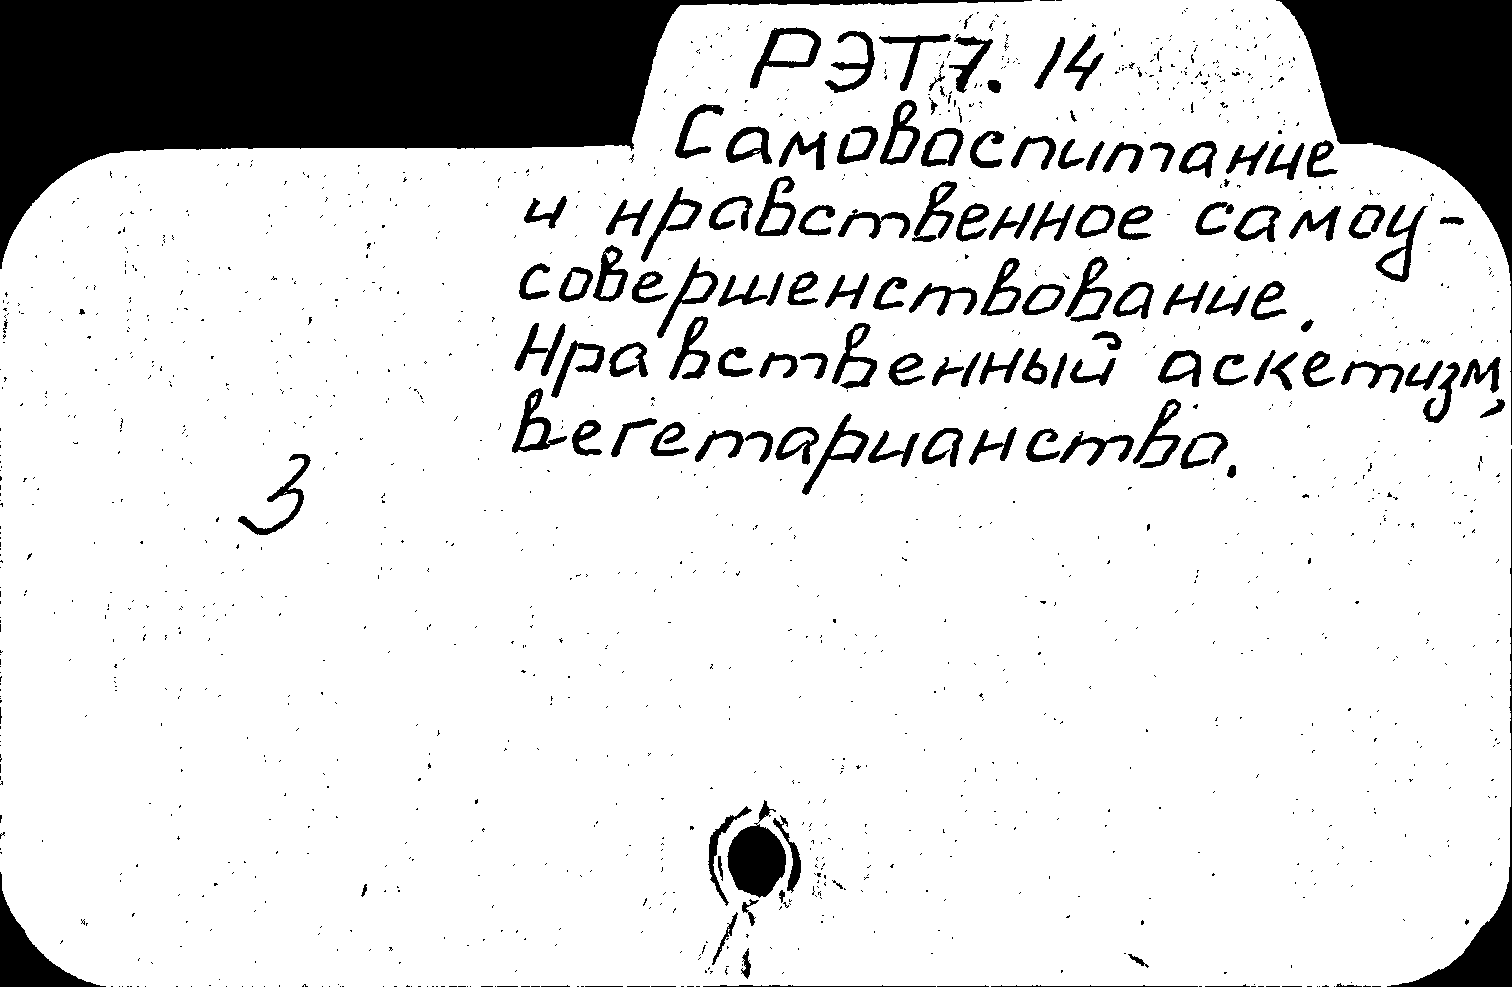 РЭТ7.14
Самовоспитание
и нравственное самоу-
совершенствование.
Нравственный аскетизм,
вегетарианство.
3